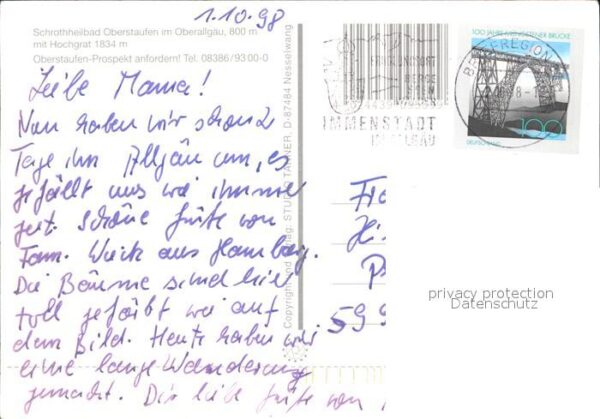 1.10.98
Schrothheilbad Oberstaufen im Oberallgäu, 800 m
mit Hochgrat 1834 m
Oberstaufen-Prospekt anfordern! Tel. 08386/93 00-0
Liebe Mama!
Nun haben wir schon 2
Tage im Allgäu um, es
gefällt uns wie immer
gut. Schöne Grüße von
Fam. Wieck aus Hamburg.
Die Bäume sind hier
toll gefärbt wie auf
dem Bild. Heute haben wir
eine lange Wanderung
gemacht. Dir liebe Grüße von
Copyright und Verlag: TANNER, D-87484 Nesselwang
IMMENSTADT
IM ALLGÄU
BRIEFREGION
100 JAHRE MÜNGSTENER BRÜCKE
DEUTSCHLAND
100
Fra
Hi
P
599
privacy protection
Datenschutz